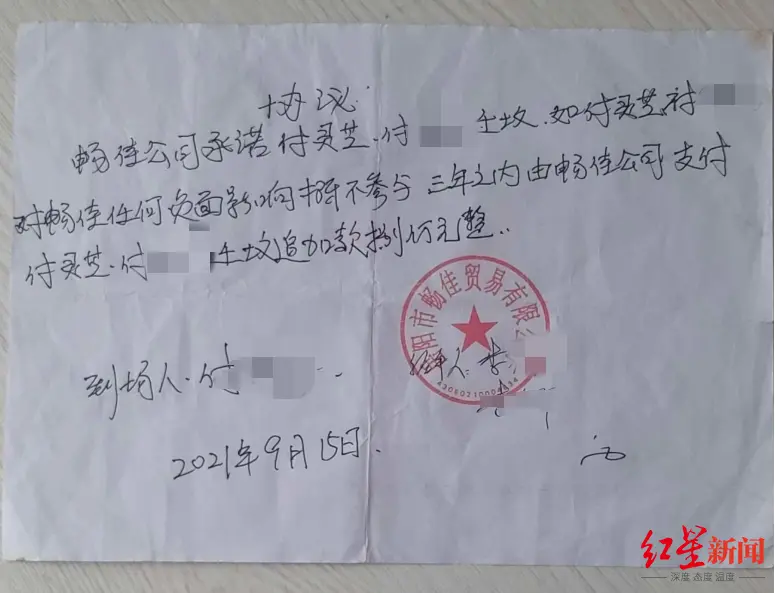 协议
畅佳公司承诺付灵芝.付 土坟.如付灵芝.付
对畅佳任何负面影响 不参与 三年之内由畅佳公司支付
付灵芝.付 土坟追加款捌仟元整..
阳市畅佳贸易有限公
到场人.付
经手人:李
2021年9月15日.
红星新闻
深度 态度 温度